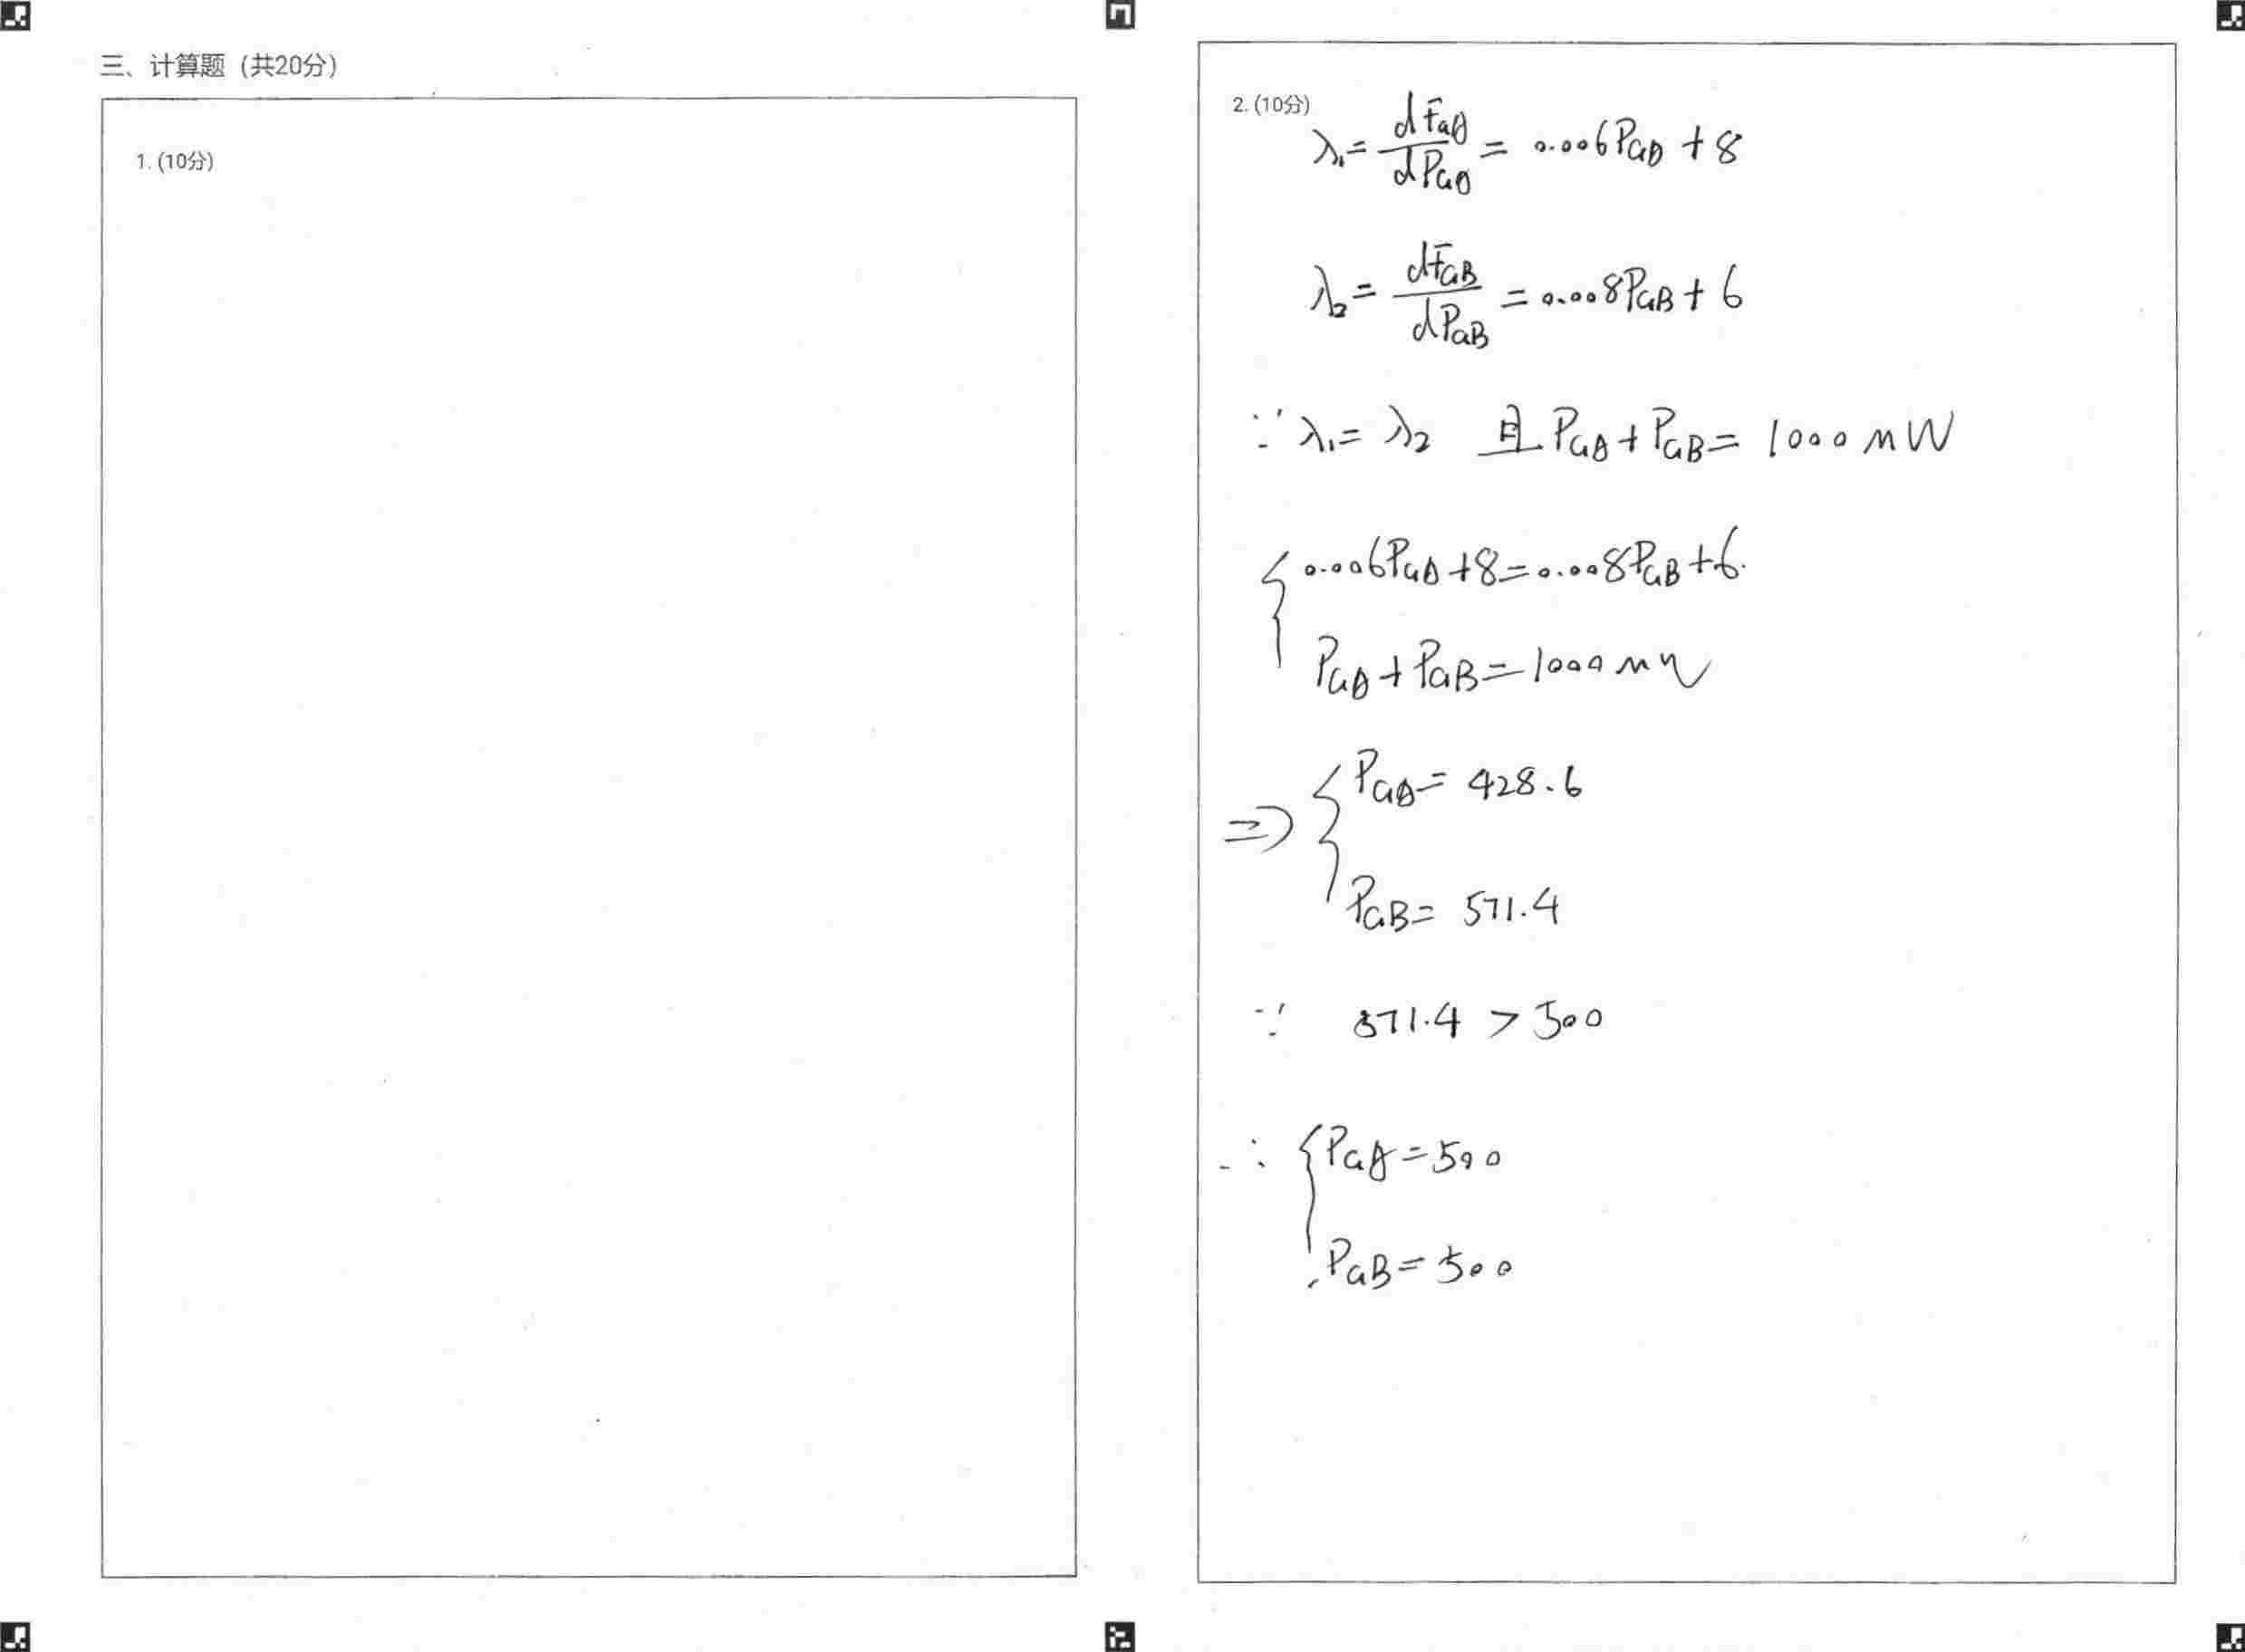 三、计算题 (共20分)
1. (10分)
2. (10分)
λ₁ = dF_GA / dP_GA = 0.006P_GA + 8
λ₂ = dF_GB / dP_GB = 0.008P_GB + 6
∵ λ₁ = λ₂ 且 P_GA + P_GB = 1000 MW
{ 0.006P_GA + 8 = 0.008P_GB + 6.
P_GA + P_GB = 1000 MW
⇒ { P_GA = 428.6
P_GB = 571.4
∵ 571.4 > 500
∴ { P_GA = 500
P_GB = 500